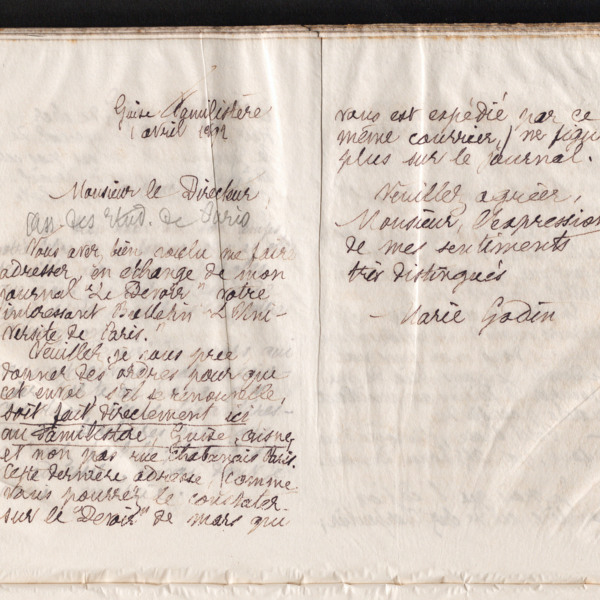 Guise Familistère
1 avril 1892
Monsieur le Directeur,
an des étud. de Paris
Vous avez bien voulu me faire
adresser, en échange de mon
journal "Le Devoir" votre
intéressant Bulletin "L'Uni-
versité de Paris."
Veuillez, je vous prie
donner des ordres pour que
cet envoi, s'il se renouvelle,
soit fait directement ici
au Familistère, Guise, Aisne,
et non pas rue Chabanais Paris.
Cette dernière adresse (comme
vous pourrez le constater
sur le "Devoir" de mars qui
vous est expédié par ce
même courrier,) ne figure
plus sur le journal.
Veuillez agréer,
Monsieur, l'expression
de mes sentiments
très distingués
Marie Godin